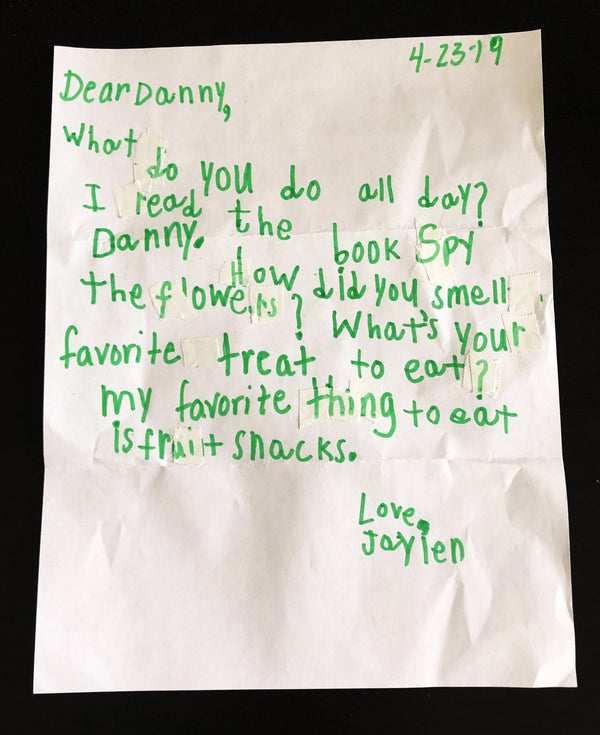 4-23-19
Dear Danny,
What do you do all day?
I read the book Spy
Danny. How did you smell
the flowers? What's your
favorite treat to eat?
my favorite thing to eat
is fruit snacks.
Love,
Jaylen